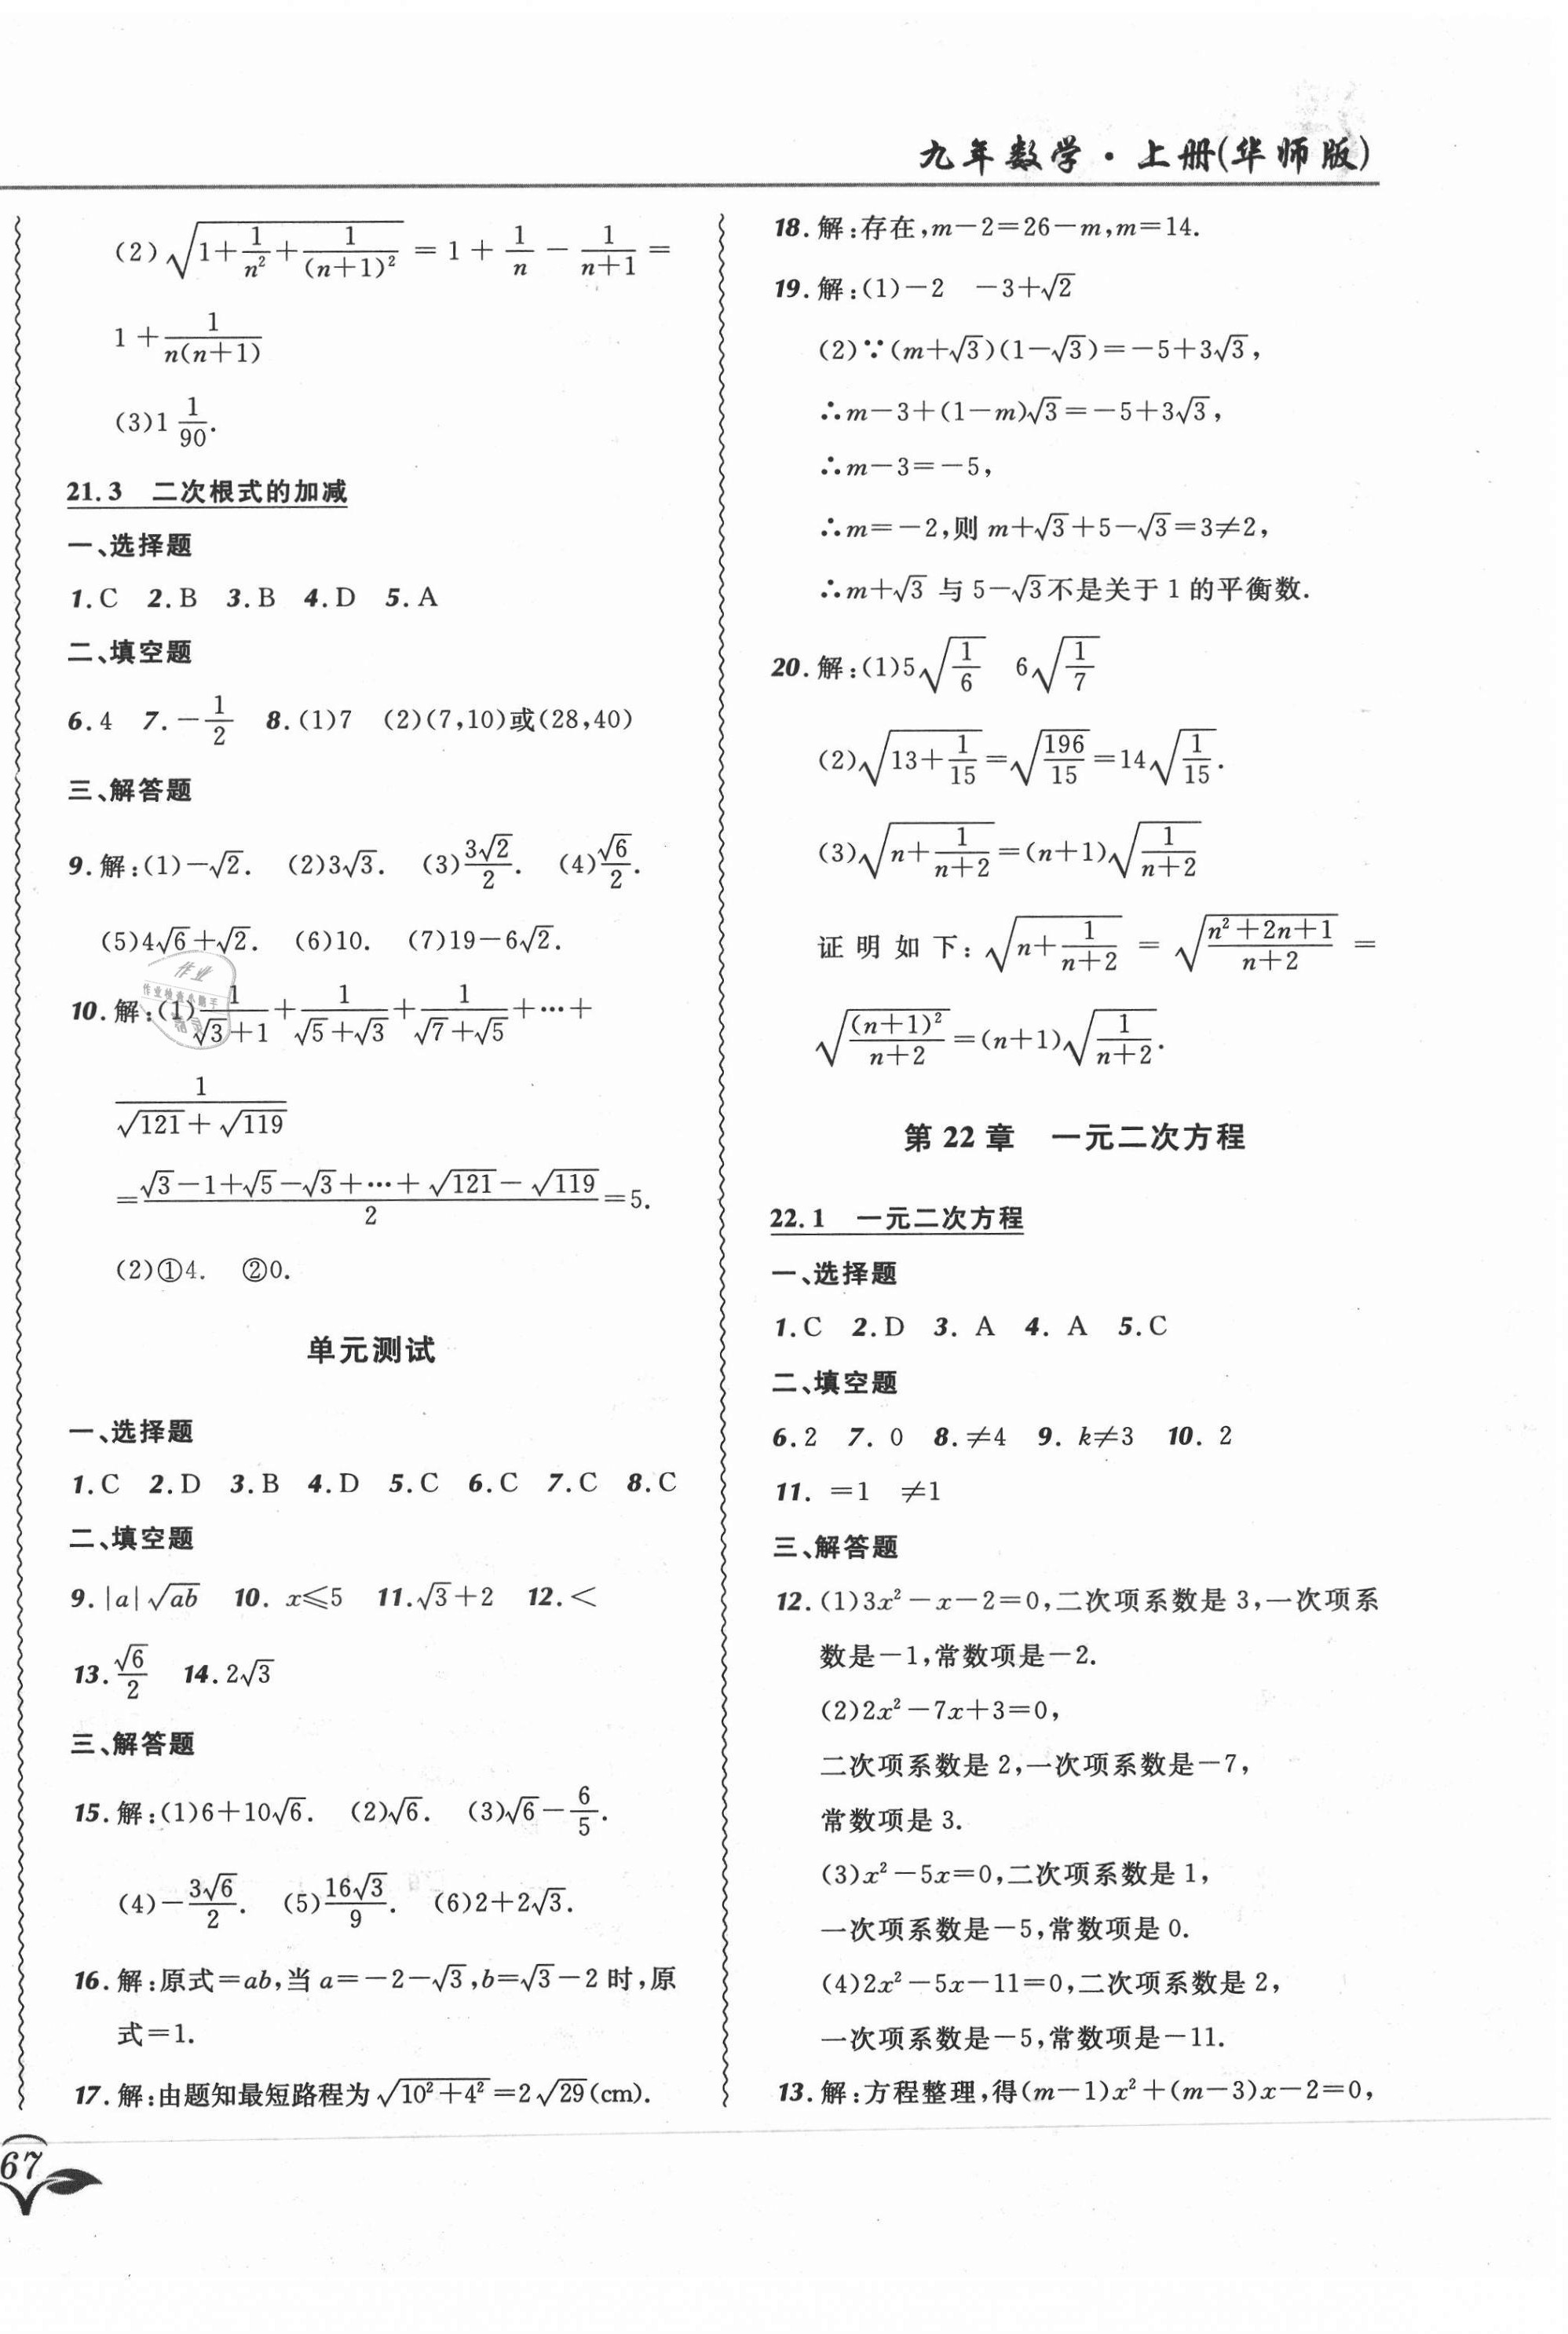 九年数学·上册(华师版)
(2)√(1+1/n²+1/(n+1)²) = 1 + 1/n − 1/(n+1) =
1 + 1/(n(n+1))
(3)1 1/90.
21.3 二次根式的加减
一、选择题
1.C 2.B 3.B 4.D 5.A
二、填空题
6.4 7.−1/2 8.(1)7 (2)(7,10)或(28,40)
三、解答题
9.解:(1)−√2. (2)3√3. (3)3√2/2. (4)√6/2.
(5)4√6+√2. (6)10. (7)19−6√2.
10.解:(1)1/(√3+1)+1/(√5+√3)+1/(√7+√5)+…+
1/(√121+√119)
=(√3−1+√5−√3+…+√121−√119)/2=5.
(2)①4. ②0.
单元测试
一、选择题
1.C 2.D 3.B 4.D 5.C 6.C 7.C 8.C
二、填空题
9.|a|√ab 10. x≤5 11.√3+2 12.<
13.√6/2 14.2√3
三、解答题
15.解:(1)6+10√6. (2)√6. (3)√6−6/5.
(4)−3√6/2. (5)16√3/9. (6)2+2√3.
16.解:原式=ab,当a=−2−√3,b=√3−2时,原
式=1.
17.解:由题知最短路程为√(10²+4²)=2√29(cm).
18.解:存在,m−2=26−m,m=14.
19.解:(1)−2 −3+√2
(2)∵(m+√3)(1−√3)=−5+3√3,
∴m−3+(1−m)√3=−5+3√3,
∴m−3=−5,
∴m=−2,则m+√3+5−√3=3≠2,
∴m+√3与5−√3不是关于1的平衡数.
20.解:(1)5√(1/6) 6√(1/7)
(2)√(13+1/15)=√(196/15)=14√(1/15).
(3)√(n+1/(n+2))=(n+1)√(1/(n+2))
证明如下:√(n+1/(n+2)) = √((n²+2n+1)/(n+2)) =
√((n+1)²/(n+2))=(n+1)√(1/(n+2)).
第22章 一元二次方程
22.1 一元二次方程
一、选择题
1.C 2.D 3. A 4. A 5.C
二、填空题
6.2 7. 0 8.≠4 9. k≠3 10. 2
11. =1 ≠1
三、解答题
12.(1)3x²−x−2=0,二次项系数是3,一次项系
数是−1,常数项是−2.
(2)2x²−7x+3=0,
二次项系数是2,一次项系数是−7,
常数项是3.
(3)x²−5x=0,二次项系数是1,
一次项系数是−5,常数项是0.
(4)2x²−5x−11=0,二次项系数是2,
一次项系数是−5,常数项是−11.
13.解:方程整理,得(m−1)x²+(m−3)x−2=0,
67